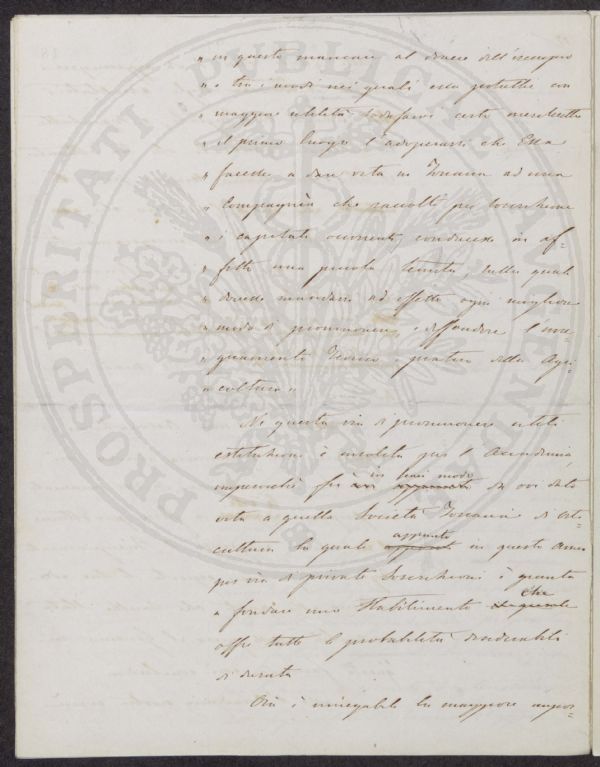 " in questo mancare al dovere dell'esempio
" e tra i modi nei quali essa potrebbe con
" maggiore utilità sodisfarvi certo merita
" il primo luogo l'adoperarsi che Essa
" facesse a dare vita in Toscana ad una
" Compagnia che raccolti per soscrizione
" i capitali occorrenti, conducesse in af-
" fitto una piccola tenuta, sulla quale
" dovesse mandare ad effetto ogni migliore
" modo di promuovere e diffondere l'inse-
" gnamento Teorico e pratico della Agri-
" coltura "
Ne questa via di promuovere utili
istituzioni è insolita per l'Accademia,
imperocchè fu in simil modo da voi data
vita a quella Società Toscana di Orti-
cultura la quale appunto in questo anno
per via di private soscrizioni è giunta
a fondare uno Stabilimento che
offre tutte le probabilità desiderabili
di durata
Ora è innegabile la maggiore impor-
PROSPERITATI PUBLICAE AUGENDAE